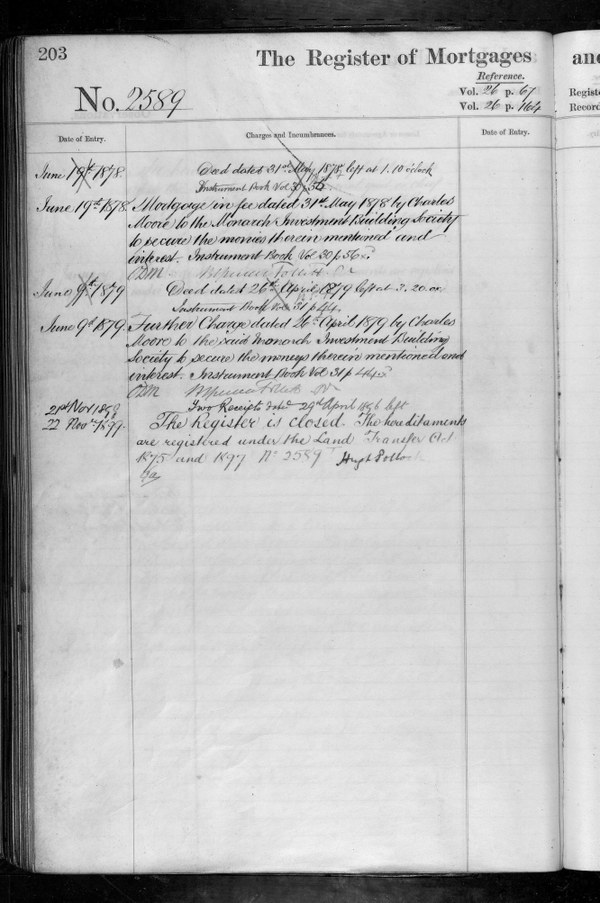 203
The Register of Mortgages
Reference.
No. 2589
Vol. 26 p. 67
Vol. 26 p. 164
Date of Entry.
Charges and Incumbrances.
Date of Entry.
June 19th 1878
Deed dated 31st May 1878 left at 1.10 o'clock
Instrument Book Vol 30 p 56
June 19th 1878
Mortgage in fee dated 31st May 1878 by Charles
Moore to the Monarch Investment Building Society
to secure the monies therein mentioned and
interest. Instrument Book Vol 30 p 56
June 9th 1879
Deed dated 26th April 1879 left at 3.20
Instrument Book Vol 31 p 44
June 9th 1879
Further Charge dated 26th April 1879 by Charles
Moore to the said Monarch Investment Building
Society to secure the moneys therein mentioned and
interest. Instrument Book Vol 31 p 44
21st Nov 1899
Two Receipts dated 29th April 1886 left
22 Nov 1899
The Register is closed. The hereditaments
are registered under the Land Transfer Acts
1875 and 1897 No 2589 Hugh
and
Registe
Record